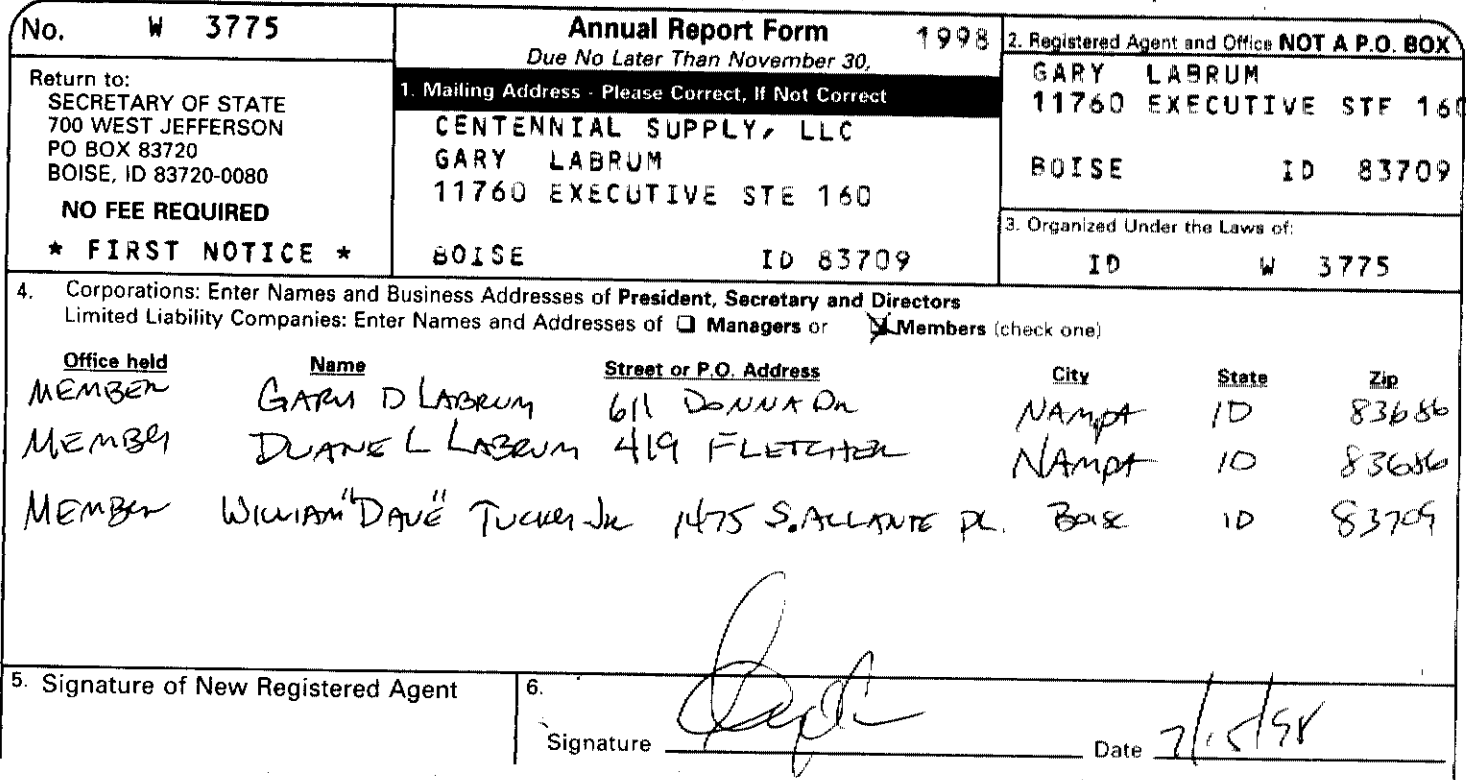 No. W 3775
Return to:
SECRETARY OF STATE
700 WEST JEFFERSON
PO BOX 83720
BOISE, ID 83720-0080
NO FEE REQUIRED
* FIRST NOTICE *
Annual Report Form 1998
Due No Later Than November 30,
1. Mailing Address - Please Correct, If Not Correct
CENTENNIAL SUPPLY, LLC
GARY LABRUM
11760 EXECUTIVE STE 160
BOISE ID 83709
2. Registered Agent and Office NOT A P.O. BOX
GARY LABRUM
11760 EXECUTIVE STE 160
BOISE ID 83709
3. Organized Under the Laws of:
ID W 3775
4. Corporations: Enter Names and Business Addresses of President, Secretary and Directors
Limited Liability Companies: Enter Names and Addresses of ☐ Managers or ☒ Members (check one)
Office held Name Street or P.O. Address City State Zip
MEMBER GARY D LABRUM 611 DONNA DR NAMPA ID 83686
MEMBER DUANE L LABRUM 419 FLETCHER NAMPA ID 83686
MEMBER WILLIAM "DAVE" TUCKER JR 1475 S. ALLANTE PL. BOISE ID 83709
5. Signature of New Registered Agent
6.
Signature Date 7/15/98